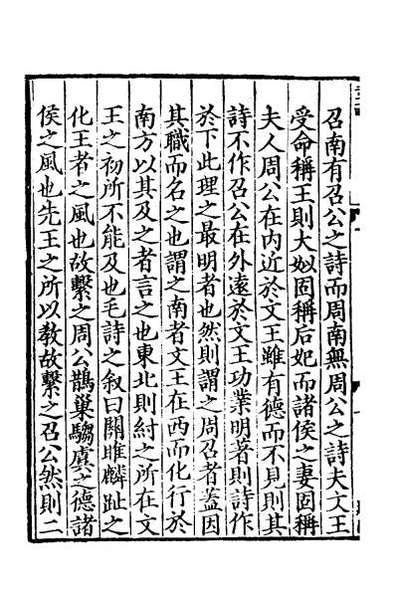 召南有召公之詩而周南無周公之詩夫文王
受命稱王則大姒固稱后妃而諸侯之妻固稱
夫人周公在内近於文王雖有德而不見則其
詩不作召公在外逺於文王功業明著則詩作
於下此理之最明者也然則謂之周召者蓋因
其職而名之也謂之南者文王在西而化行於
南方以其及之者言之也東北則紂之所在文
王之初所不能及也毛詩之敘曰關雎麟趾之
化王者之風也故繫之周公鵲巢騶虞之德諸
侯之風也先王之所以教故繫之召公然則二